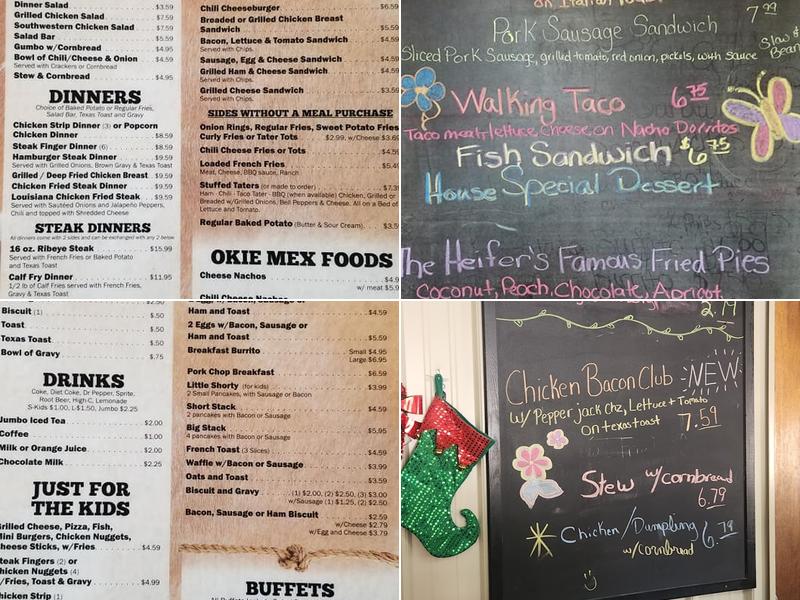 Dinner Salad $3.59
Grilled Salad $7.59
Southwestern Chicken Salad $7.59
Salad Bar $5.59
Gumbo w/Cornbread $4.95
Bowl of Chili/Cheese & Onion $4.59
Served with Crackers or Cornbread
Stew & Cornbread $4.95
DINNERS
Choice of Baked Potato or Regular Fries,
Salad Bar, Texas Toast and Gravy
Chicken Strip Dinner (3) or Popcorn
Chicken Dinner $8.59
Steak Finger Dinner (6) $8.59
Hamburger Steak Dinner $9.59
Served with Grilled Onions, Brown Gravy & Toast
Grilled / Deep Fried Chicken Breast $9.59
Chicken Fried Steak Dinner $9.59
Louisiana Chicken Fried Steak $9.59
Served with Sautéed Onions and Jalapeño Peppers,
Chili and topped with Shredded Cheese
STEAK DINNERS
All dinners come with 2 sides and can be exchanged with any 2 below
16 oz. Ribeye Steak $15.99
Served with French Fries or Baked Potato
and Texas Toast
Calf Fry Dinner $11.95
1/2 lb of Calf Fries served with French Fries,
Gravy & Texas Toast
Chili Cheeseburger $6.59
Breaded or Grilled Chicken Breast
Sandwich $5.59
Bacon, Lettuce & Tomato Sandwich $4.59
Served with Chips.
Sausage, Egg & Cheese Sandwich $4.59
Grilled Ham & Cheese Sandwich $4.59
Served with Chips.
Grilled Cheese Sandwich $3.59
Served with Chips.
SIDES WITHOUT A MEAL PURCHASE
Onion Rings, Regular Fries, Sweet Potato Fries
Curly Fries or Tater Tots $2.99, w/Cheese $3.69
Chili Cheese Fries or Tots $4.59
Loaded French Fries $5.49
Meat, Cheese, BBQ sauce, Ranch
Stuffed Taters (or made to order) $7.3
Ham - Chili - Taco Tater - BBQ (when available) Chicken, Grilled or
Breaded w/Grilled Onions, Bell Peppers & Cheese. All on a Bed of
Lettuce and Tomato.
Regular Baked Potato (Butter & Sour Cream) $3.5
OKIE MEX FOODS
Cheese Nachos $4.9
w/ meat $5.9
Chili Cheese Nachos
Pork Sausage Sandwich 7.99
Sliced Pork Sausage, grilled tomato, red onion, pickels, with sauce Slaw & Beans
Walking Taco 6.75
Taco meat, lettuce, cheese, on Nacho Dorritos
Fish Sandwich $6.75
House Special Dessert
The Heifer's Famous Fried Pies
Coconut, Peach, Chocolate, Apricot,
Biscuit (1) $.50
Toast $.50
Texas Toast $.50
Bowl of Gravy $.75
DRINKS
Coke, Diet Coke, Dr Pepper, Sprite,
Root Beer, High-C, Lemonade
S-Kids $1.00, L-$1.50, Jumbo $2.25
Jumbo Iced Tea $2.00
Coffee $1.00
Milk or Orange Juice $2.00
Chocolate Milk $2.25
JUST FOR
THE KIDS
Grilled Cheese, Pizza, Fish,
Mini Burgers, Chicken Nuggets,
Cheese Sticks, w/Fries $4.59
Steak Fingers (2) or
Chicken Nuggets (4)
w/Fries, Toast & Gravy $4.99
Chicken Strip (1)
Ham and Toast $4.59
2 Eggs w/Bacon, Sausage or
Ham and Toast $5.59
Breakfast Burrito Small $4.95
Large $6.95
Pork Chop Breakfast $6.59
Little Shorty (for kids) $3.99
2 Small Pancakes, with Sausage or Bacon
Short Stack $4.59
2 pancakes with Bacon or Sausage
Big Stack $5.95
4 pancakes with Bacon or Sausage
French Toast (3 Slices) $4.59
Waffle w/Bacon or Sausage $3.99
Oats and Toast $3.59
Biscuit and Gravy (1) $2.00, (2) $2.50, (3) $3.00
w/Sausage (1) $1.25, (2) $2.50
Bacon, Sausage or Ham Biscuit $2.59
w/Cheese $2.79
w/Egg and Cheese $3.79
BUFFETS
Chicken Bacon Club NEW
w/ Pepper jack chz, Lettuce & Tomato
on texas toast 7.59
Stew w/cornbread
6.79
Chicken/Dumpling 6.79
w/cornbread